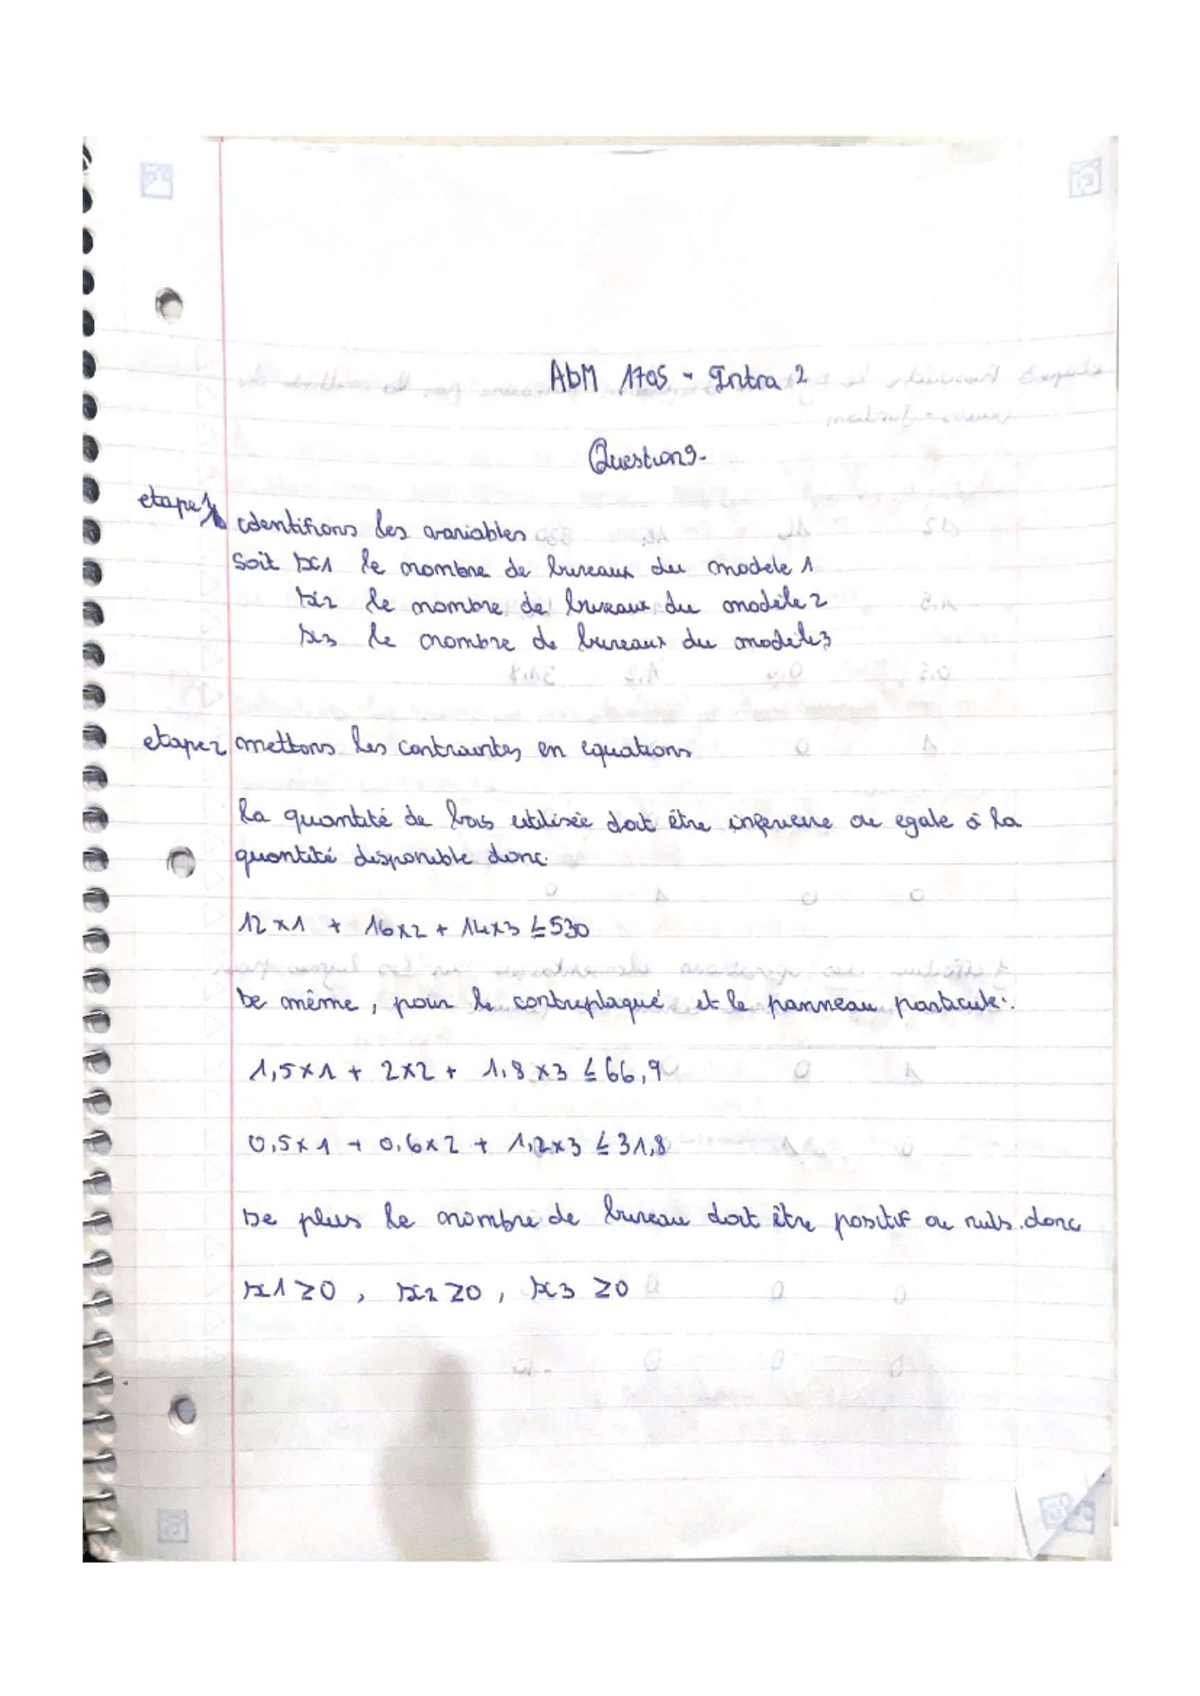 AbM 1705 - Intra 2
Question 9-
etape 1 identifions les variables
Soit x1 le nombre de bureaux du modele 1
x2 le nombre de bureaux du modèle 2
x3 le nombre de bureaux du modèle 3
etape 2 mettons les contraintes en equations
la quantité de bois utilisée doit être inferieure ou egale à la
quantité disponible donc
12x1 + 16x2 + 14x3 ≤ 530
De même, pour le contreplaqué et le panneau particule:
1,5x1 + 2x2 + 1,8x3 ≤ 66,9
0,5x1 + 0,6x2 + 1,2x3 ≤ 31,8
De plus le nombre de bureau doit être positif ou nuls donc
x1 ≥ 0, x2 ≥ 0, x3 ≥ 0